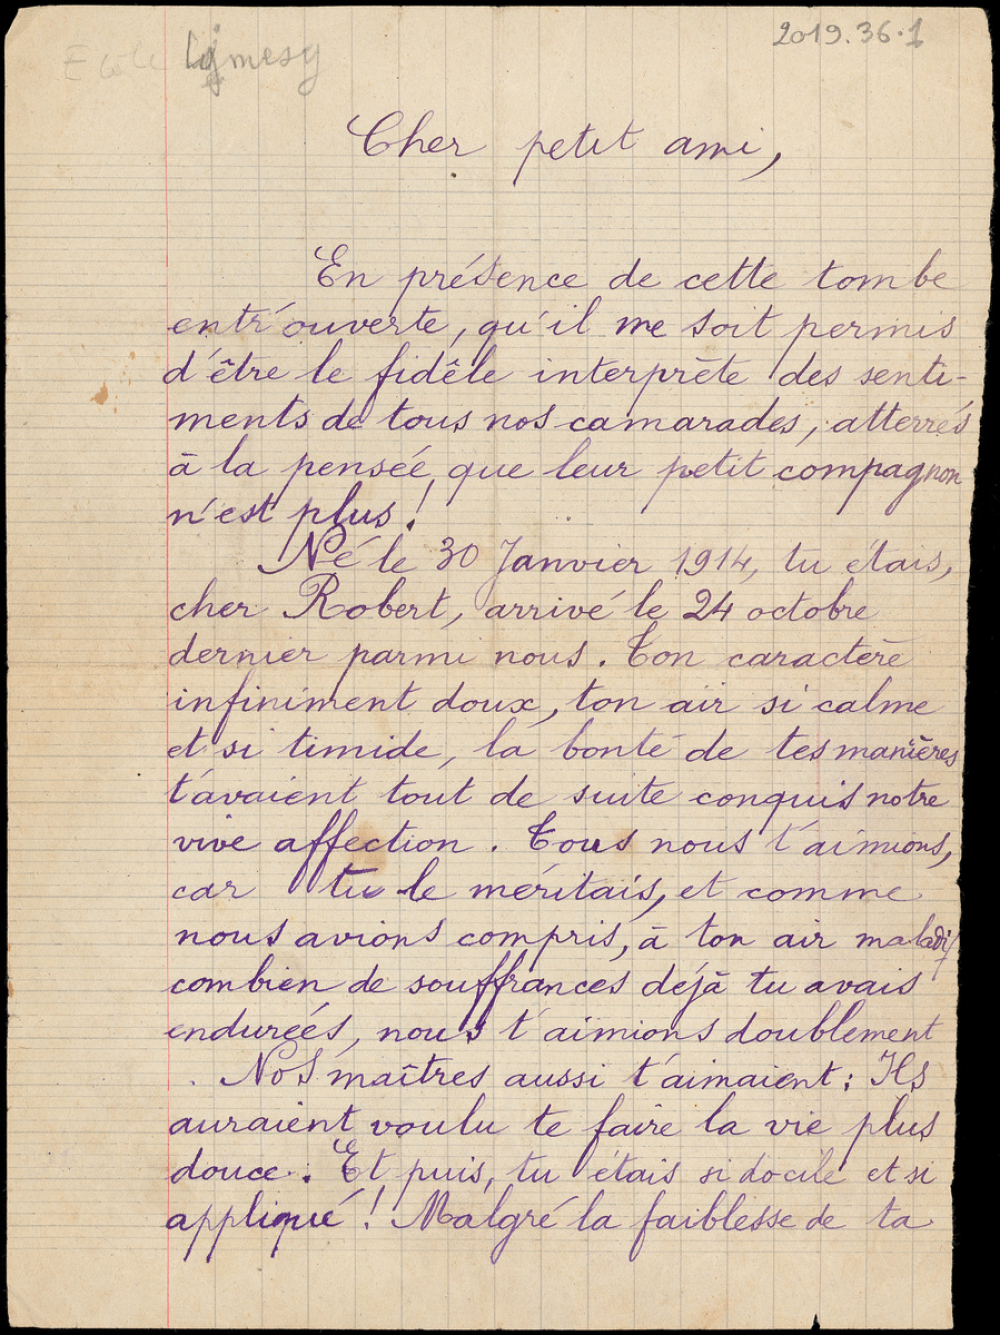 2019.36.1
Cher petit ami,
En présence de cette tombe
entr'ouverte, qu'il me soit permis
d'être le fidèle interprète des senti-
ments de tous nos camarades, atterrés
à la pensée, que leur petit compagnon
n'est plus !
Né le 30 Janvier 1914, tu étais,
cher Robert, arrivé le 24 octobre
dernier parmi nous. Ton caractère
infiniment doux, ton air si calme
et si timide, la bonté de tes manières
t'avaient tout de suite conquis notre
vive affection. Tous nous t'aimions,
car tu le méritais, et comme
nous avions compris, à ton air maladif
combien de souffrances déjà tu avais
endurées, nous t'aimions doublement
. Nos maîtres aussi t'aimaient : Ils
auraient voulu te faire la vie plus
douce. Et puis, tu étais si docile et si
appliqué ! Malgré la faiblesse de ta